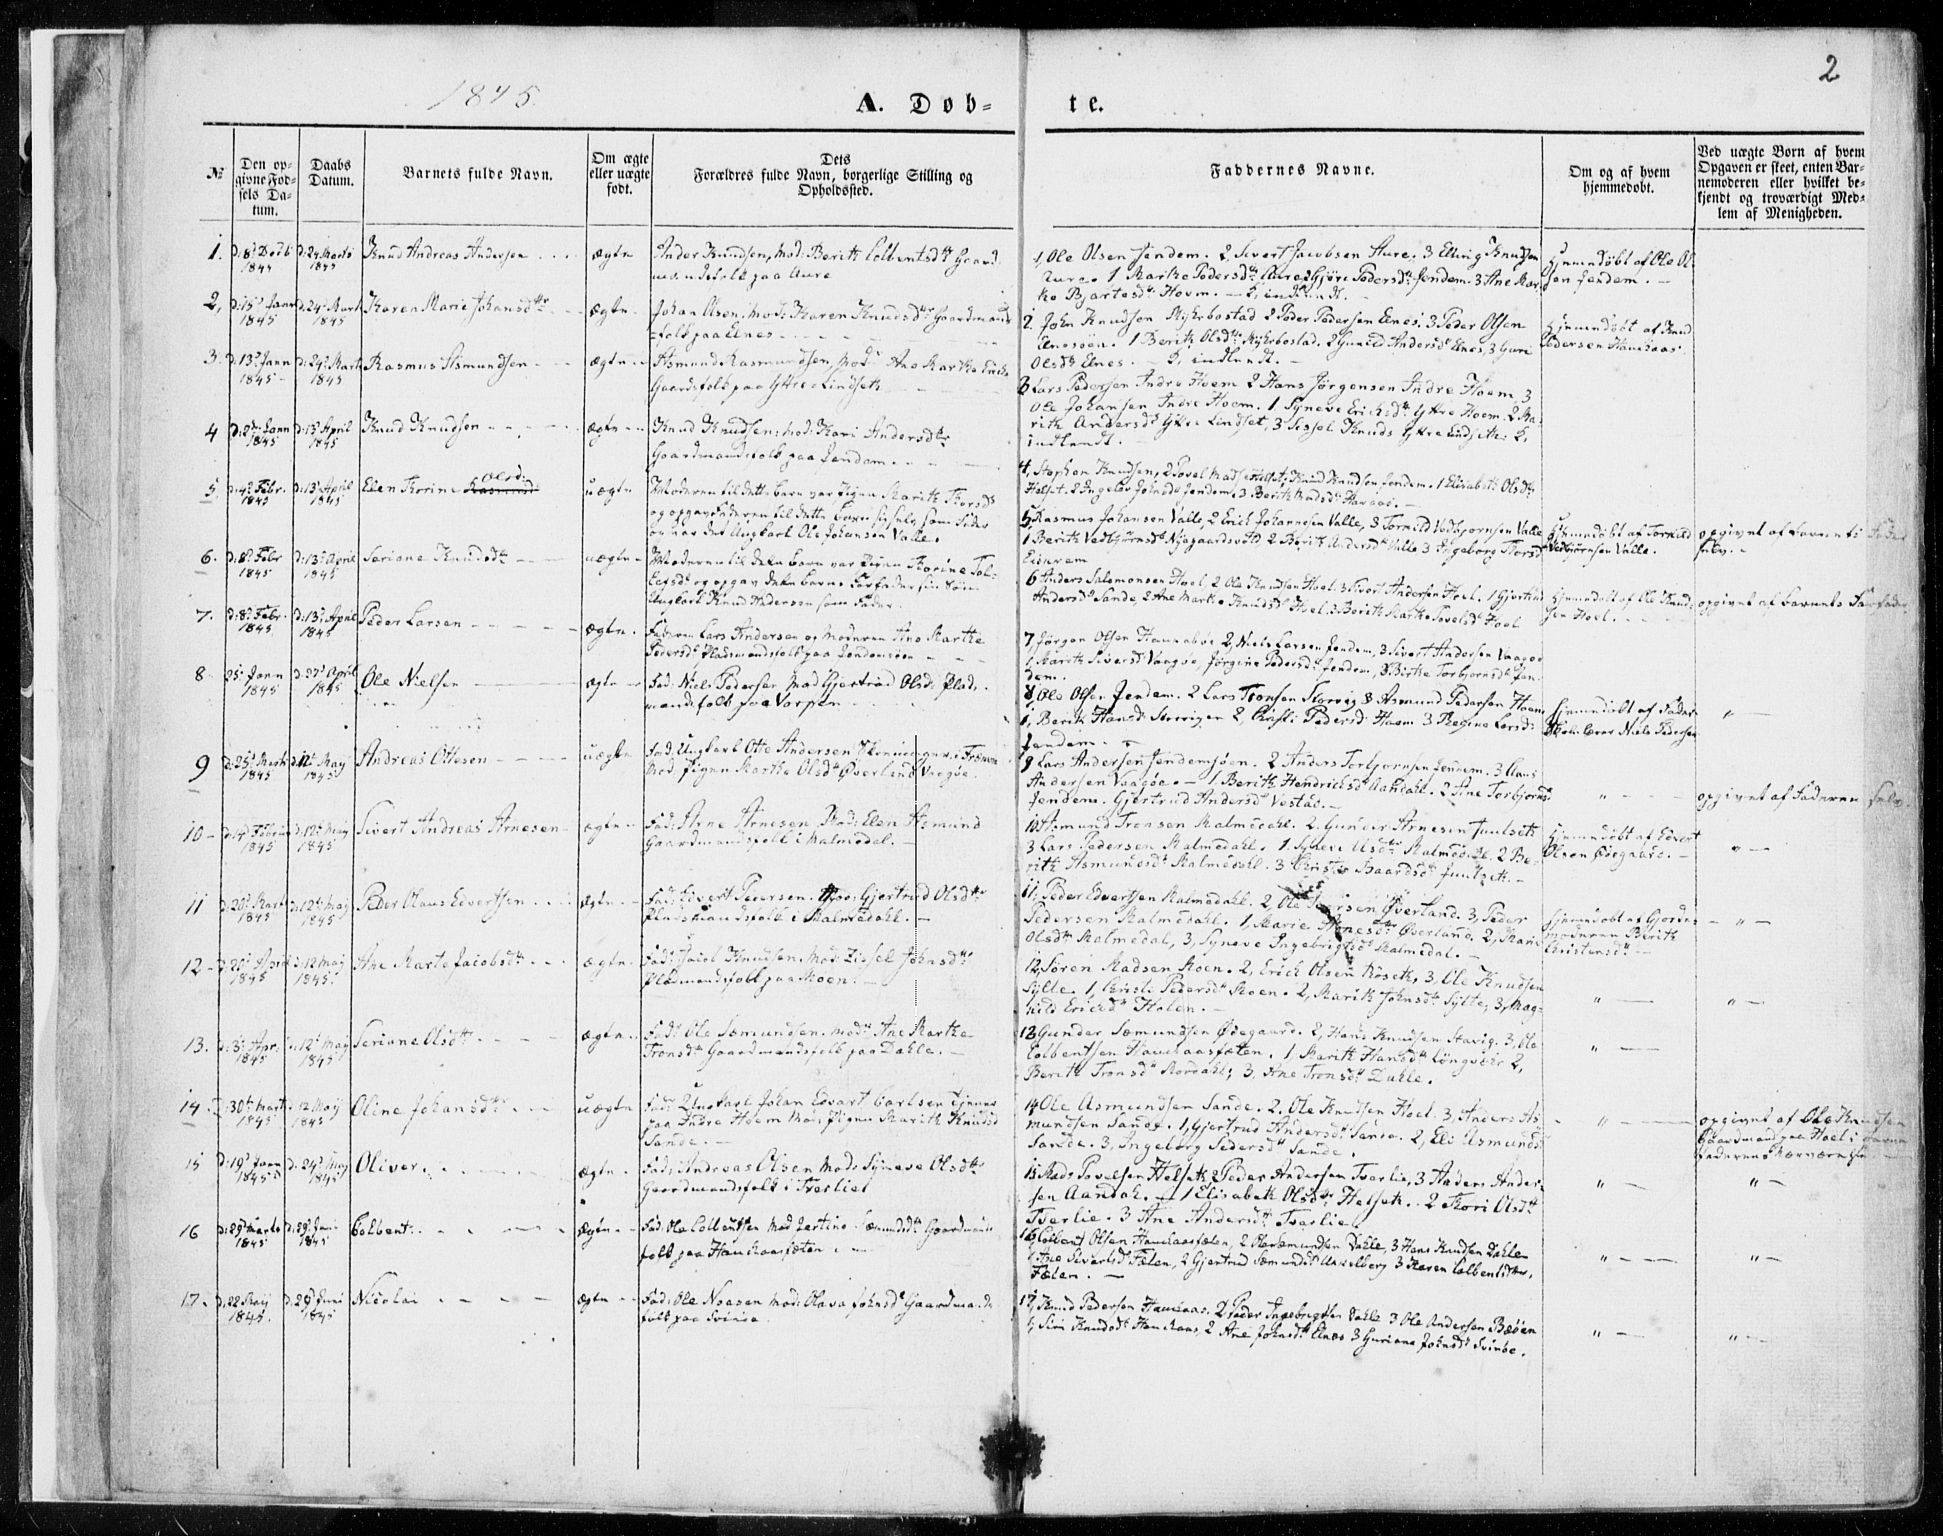 2
1845.
A. Døb-
te.
№
Den op-
givne Fød-
sels Da-
tum.
Daabs
Datum.
Barnets fulde Navn.
Om ægte
eller uægte
født.
Dets
Forældres fulde Navn, borgerlige Stilling og
Opholdssted.
Faddernes Navne.
Om og af hvem
hjemmedøbt.
Ved uægte Børn af hvem
Opgaven er skeet, enten Bar-
nemoderen eller hvilket be-
kjendt og troværdigt Med-
lem af Menigheden.
1.
d: 24 Marts
1845
Knud Andreas Andersen
ægte
Ander Knudsen, Mod: Berith Colbentsdtr Gaard
mandsfolk paa Aure
1, Ole Olsen Jendem. 2 Sivert Jacobsen Aure. 3 Elling Knudsen
Aure. 1 Marthe Pedersdtr Aure 2 Gjøri Pedersdtr Jendem. 3 Ane Mar-
the Bjartesdtr Hoem.
Hjemmedøbt af Ole Ol-
sen Jendem.
2,
d: 15 Janr
1845
d: 24 Mart
1845
Karen Marie Johansdtr
ægte
Johan Olsen, Mod: Karen Knudsdtr Gaardmands
folk paa Elnes
2. John Knudsen Myhrbostad 2 Peder Pedersen Elnes, 3 Peder Olsen
Elnesøen. 1 Berith Olsdtr Myhrbostad. 2 Gunild Andersd Elnes, 3 Guri
Olsdtr Elnes.
Hjemmedøbt af Knud
Pedersen Haukaas
3.
d: 13 Janr
1845
d: 24 Mart
1845
Rasmus Asmundsen
ægte
Asmund Rasmundsen, Mod: Ane Marthe Ericks
Gaardsfolk paa Ythre Lindseth
3 Lars Pedersen Indre Hoem 2 Hans Jørgensen Indre Hoem 3
Ole Johansen Indre Hoem. 1, Synneve Erichsdtr Ythre Hoem. 2 Ma-
rith Andersd Ythre Lindset, 3 Sissel Knuds Ythre Lindseth.
4
1845
d: 13 April
1845
Knud Knudsen
ægte
Knud Knudsen, Mod: Kari Andersdtr
Gaardmandsfolk paa Jendem
4, Stephen Knudsen, 2 Povel Madsen Helset, 3 Knud Knudsen Jendem. 1 Elisabeth Olsdtr
Helset. 2 Ingebor Johnsd Jendem. 3 Berith Madsd
5
d: 4 Febr.
1845
d: 13 April
1845
Olsd:
Elen Thorine
uægte
Moderen til dette barn var Pigen Marith Thorsd
og opgav Faderen til dette barn som Fader
og var det Ungkarl Ole Johansen Valle.
5, Rasmus Johansen Valle, 2 Erich Johannesen Valle, 3 Torkild Vedbjørnsen Valle
1 Berith Vedbjørnsd Nygaardsvold 2 Berith Andersd Valle 3 Ingeborg Thorsd
Eisnrem
Hjemmedøbt af Torkild
Vedbjørnsen Valle.
opgivet af barnets Fader
selv.
6.
d: 8 Febr
1845
d: 13 April
1845
Seriane Knudsdtr
uægte
Moderen til dette barn var Pigen Thorine Tol-
lefsd og opgav dette barns Farfader sin Søn
Ungkarl Knud Andersen som Fader.
6 Anders Salomonsen Hoel, 2 Ole Knudsen Hoel. 3 Sivert Andersen Hoel. 1 Gjertrud
Andersd Sande, 2 Ane Marthe Knudsd Hoel. 3 Berith Marthe Povelsd Hoel
Hjemmedøbt af Ole Knud-
sen Hoel.
opgivet af barnets Farfader
7.
d: 8 Febr.
1845
d: 13 April
1845
Peder Larsen
ægte
Faderen Lars Andersen og Moderen Ane Marthe
Pedersd Pladsmandsfolk paa Jendemsøen
7, Jørgen Olsen Haukabøe 2, Niels Larsen Jendem, 3 Sivert Andersen Vaagøe
1, Marith Siversd Vaagøe, Jørgine Pedersd Jendem, 3 Birthe Torbjørnsd Jen-
dem.
8
25 Janr
1845
d. 27 April
1845
Ole Nielsen
ægte
Fad: Niels Pedersen Mod Gjertrud Olsd: Plads-
mandsfolk paa Vorpen
8, Ole Olsen Jendem. 2 Lars Tronsen Storvig 3 Asmund Pedersen Hoem
1, Berith Hansd 2, Christi Pedersd Hoem 3 Regine Larsd:
Jendem.
Hjemmedøbt af Fader
Skolelærer Niels Pedersen
"
9
d: 25 Marts
1845
d. 12 May
1845
Andreas Ottesen
uægte
Fad: Ungkarl Otte Andersen
Mod: Pigen Marthe Olsd Øverland Vaagøe.
9 Lars Andersen Jendemsøen. 2 Anders Torbjørnsen Jendem. 3 Claus
Andersen Vaagøe. 1 Berith Hendrichsd Aandahl. 2 Ane Torbjørns
Jendem. Gjertrud Andersd Vestad.
"
opgivet af Faderen selv.
10
1845
d: 12 May
1845
Sivert Andreas Arnesen
ægte
Fad: Arne Arnesen, Mod: Elen Asmund
Gaardmandsfolk i Malmedal.
10 Asmund Tronsen Malmedahl. 2. Gunder Arnesen Juulseth
3 Lars Pedersen Malmedahl. 1, Syneve Olsdtr Malmedahl. 2 Be-
rith Asmundsd Malmedahl. 3 Baardsd Juulseth.
Hjemmedøbt af Edvert
Olsen Ødegaard.
"
11
d: 20 Mart
1845
d: 12 May
1845
Peder Olaus Edvertsen
ægte
Fad: Edvert Pedersen. Mod: Gjertrud Olsdtr
Pladsmandsfolk i Malmedahl.
11, Peder Edvertsen Malmedahl. 2, Ole Øverland. 3, Peder
Pedersen Malmedahl. 1, Marie Øverland. 2, Marie
Olsdtr Malmedal, 3, Syneve Ingebrigtsd Malmedal.
Hjemmedøbt af Gjorde-
moderen Berith
Christensd
"
12
d: 20 April
1845
d: 12 May
1845
Ane Marte Jacobsdtr
ægte
Fad: Jacob Knudsen, Mod: Zissel Johnsdtr
Pladsmandsfolk paa Moen.
12, Søren Madsen Moen. 2, Erich Olsen Røseth, 3, Ole Knudsen
Sylte. 1, Christi Pedersdtr Moen. 2, Marith Johnsdtr Sylte, 3, Mag-
nild Ericsd Holen.
"
"
13.
1845
12 May
1845
Seriane Olsdtr
ægte
Fad: Ole Sæmundsen. Mod: Ane Marthe
Tronsdtr Gaardmandsfolk paa Dahle.
13 Gunder Sæmundsen Ødegaard. 2, Hans Knudsen Stavig. 3, Ole
Colbentsen Haukaasfæten. 1, Marith Hansdtr 2,
Berith Tronsd Mordahl, 3, Ane Tronsd Dahle.
"
14.
30 Marts
1845
12 May
1845
Oline Johansdtr
uægte
Fad: Ungkarl Johan Edvart Carlsen tjener
paa Indre Hoem Mod: Pigen Marith Knudsd
Sande.
14 Ole Asmundsen Sande. 2. Ole Knudsen Hoel. 3, Anders As-
mundsen Sande. 1, Gjertrud Andersd Sande. 2, Eli Asmunds
Sande. 3, Ingeborg Pedersd Sande.
"
opgivet af Ole Knudsen
Gaardmand paa Hoel i barne
faderens nærværelse
15
d: 19 Janr
1845
d. 24 May
1845
Oliver
ægte
Fad: Andreas Olsen Mod: Syneve Olsdtr
Gaardmandsfolk i Tverlie
15 Mads Povelsen Helseth 2 Peder Andersen Tverlie, 3 Anders Ander-
sen Aandal. 1 Elisabeth Olsdtr Helseth. 2 Kari Olsdtr
Tverlie. 3 Ane Andersdtr Tverlie
"
"
16
d: 29 Marts
1845
d: 29 Juni
1845
Colbent
ægte
Fad: Ole Colbentsen Mod Sæmundsdtr Gaardmands
folk paa Haukaasfæten
16 Colbent Olsen Haukaasfæten, 2 Ole Sæmundsen Dahle, 3 Hans Knudsen Dahle
1 Ane Sivertsd Fæten, 2 Gjertrud Sæmundsd 3 Karen Colbentsdtr,
Fæten.
"
"
17.
d: 22 May
1845.
d. 29 Juni
1845
Nicolai
ægte
Fad: Ole Noasen Mod: Olava Johnsd Gaardmands
folk paa Svinøe
17, Knud Pedersen Haukaas, 2 Peder Ingebrigtsen Dahle 3 Ole Andersen Bæøen
1, Siri Knudsd Haukaas, 2 Ane Johnsd Elnes 3 Guriane Johnsd Svinøe.
"
"